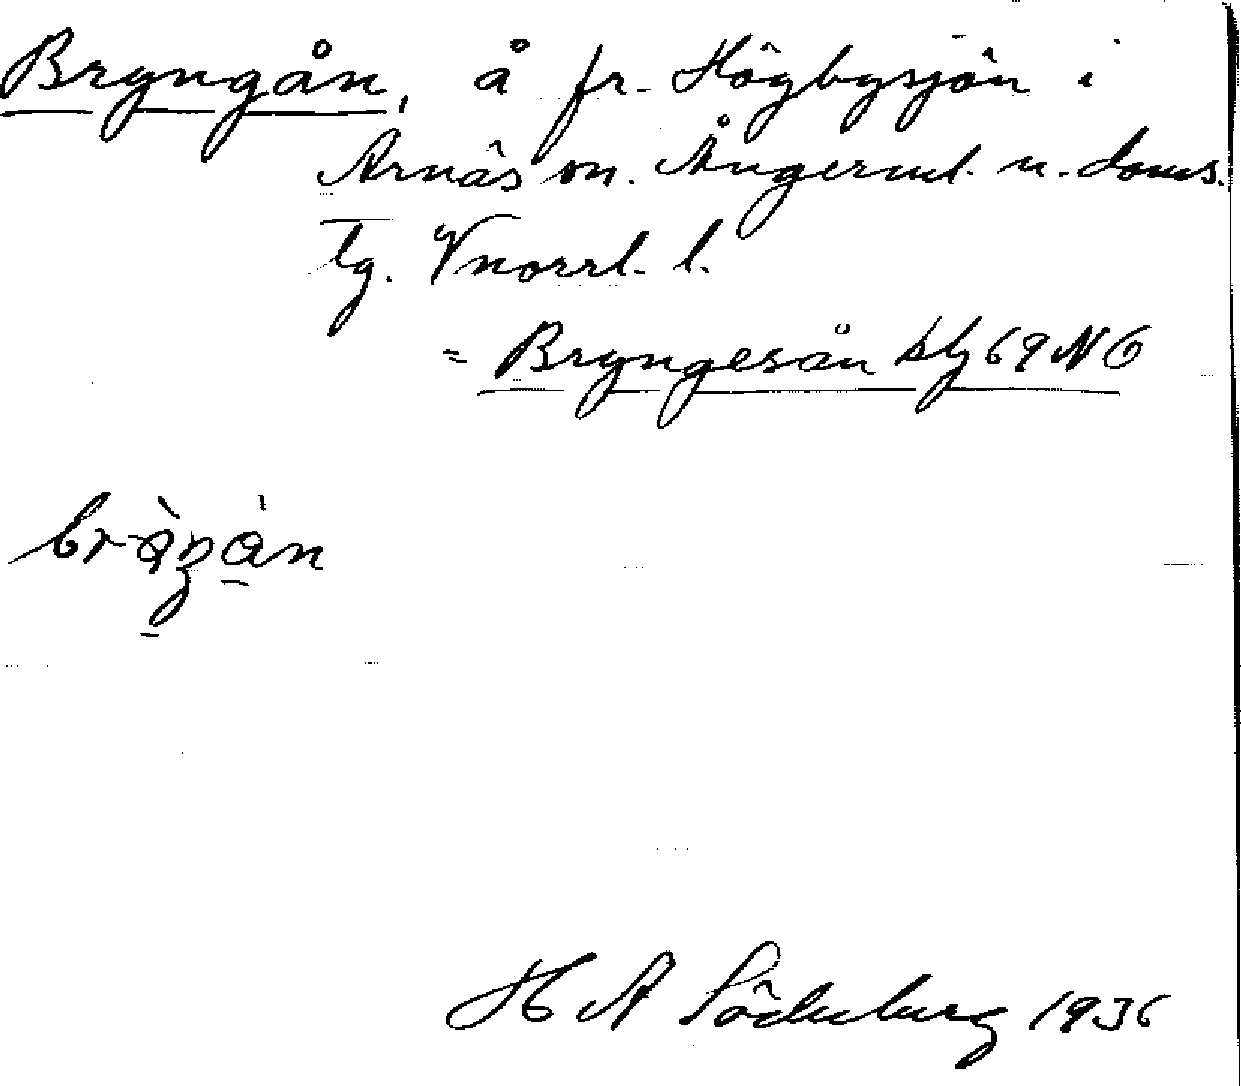 Bryngån, å fr. Högbysjön i
Arnäs sn. Ångerml. n. doms.
tg. Vnorrl. l.
= Bryngesån blj 69 NO
H A Söderberg 1936